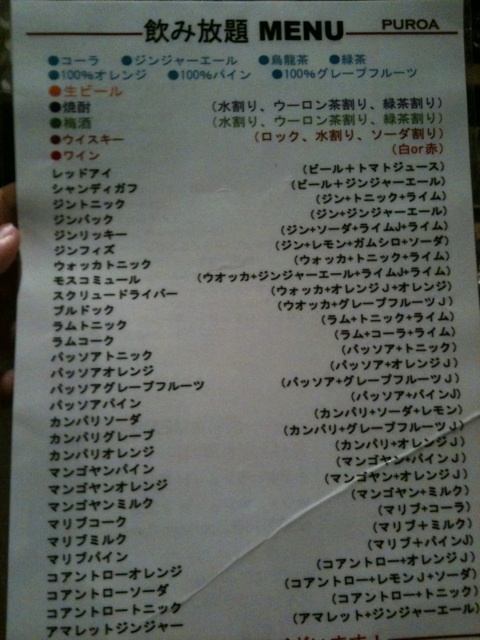 飲み放題 MENU PUROA
●コーラ ●ジンジャーエール ●烏龍茶 ●緑茶
●100%オレンジ ●100%パイン ●100%グレープフルーツ
●生ビール
●焼酎 （水割り、ウーロン茶割り、緑茶割り）
●梅酒 （水割り、ウーロン茶割り、緑茶割り）
●ウイスキー （ロック、水割り、ソーダ割り）
●ワイン （白or赤）
レッドアイ （ビール＋トマトジュース）
シャンディガフ （ビール＋ジンジャーエール）
ジントニック （ジン＋トニック＋ライム）
ジンバック （ジン＋ジンジャーエール）
ジンリッキー （ジン＋ソーダ＋ライムJ＋ライム）
ジンフィズ （ジン＋レモン＋ガムシロ＋ソーダ）
ウォッカトニック （ウォッカ＋トニック＋ライム）
モスコミュール （ウオッカ＋ジンジャーエール＋ライムJ＋ライム）
スクリュードライバー （ウォッカ＋オレンジJ＋オレンジ）
ブルドック （ウオッカ＋グレープフルーツJ）
ラムトニック （ラム＋トニック＋ライム）
ラムコーク （ラム＋コーラ＋ライム）
パッソアトニック （パッソア＋トニック）
パッソアオレンジ （パッソア＋オレンジJ）
パッソアグレープフルーツ （パッソア＋グレープフルーツJ）
パッソアパイン （パッソア＋パインJ）
カンパリソーダ （カンパリ＋ソーダ＋レモン）
カンパリグレープ （カンパリ＋グレープフルーツJ）
カンパリオレンジ （カンパリ＋オレンジJ）
マンゴヤンパイン （マンゴヤン＋パインJ）
マンゴヤンオレンジ （マンゴヤン＋オレンジJ）
マンゴヤンミルク （マンゴヤン＋ミルク）
マリブコーク （マリブ＋コーラ）
マリブミルク （マリブ＋ミルク）
マリブパイン （マリブ＋パインJ）
コアントローオレンジ （コアントロー＋オレンジJ）
コアントローソーダ （コアントロー＋レモンJ＋ソーダ）
コアントロートニック （コアントロー＋トニック）
アマレットジンジャー （アマレット＋ジンジャーエール）